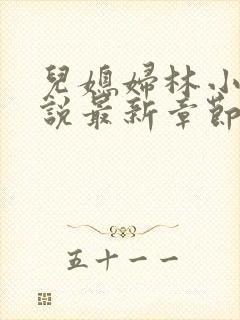 兒媳婦林小
說最新章節
五十一一